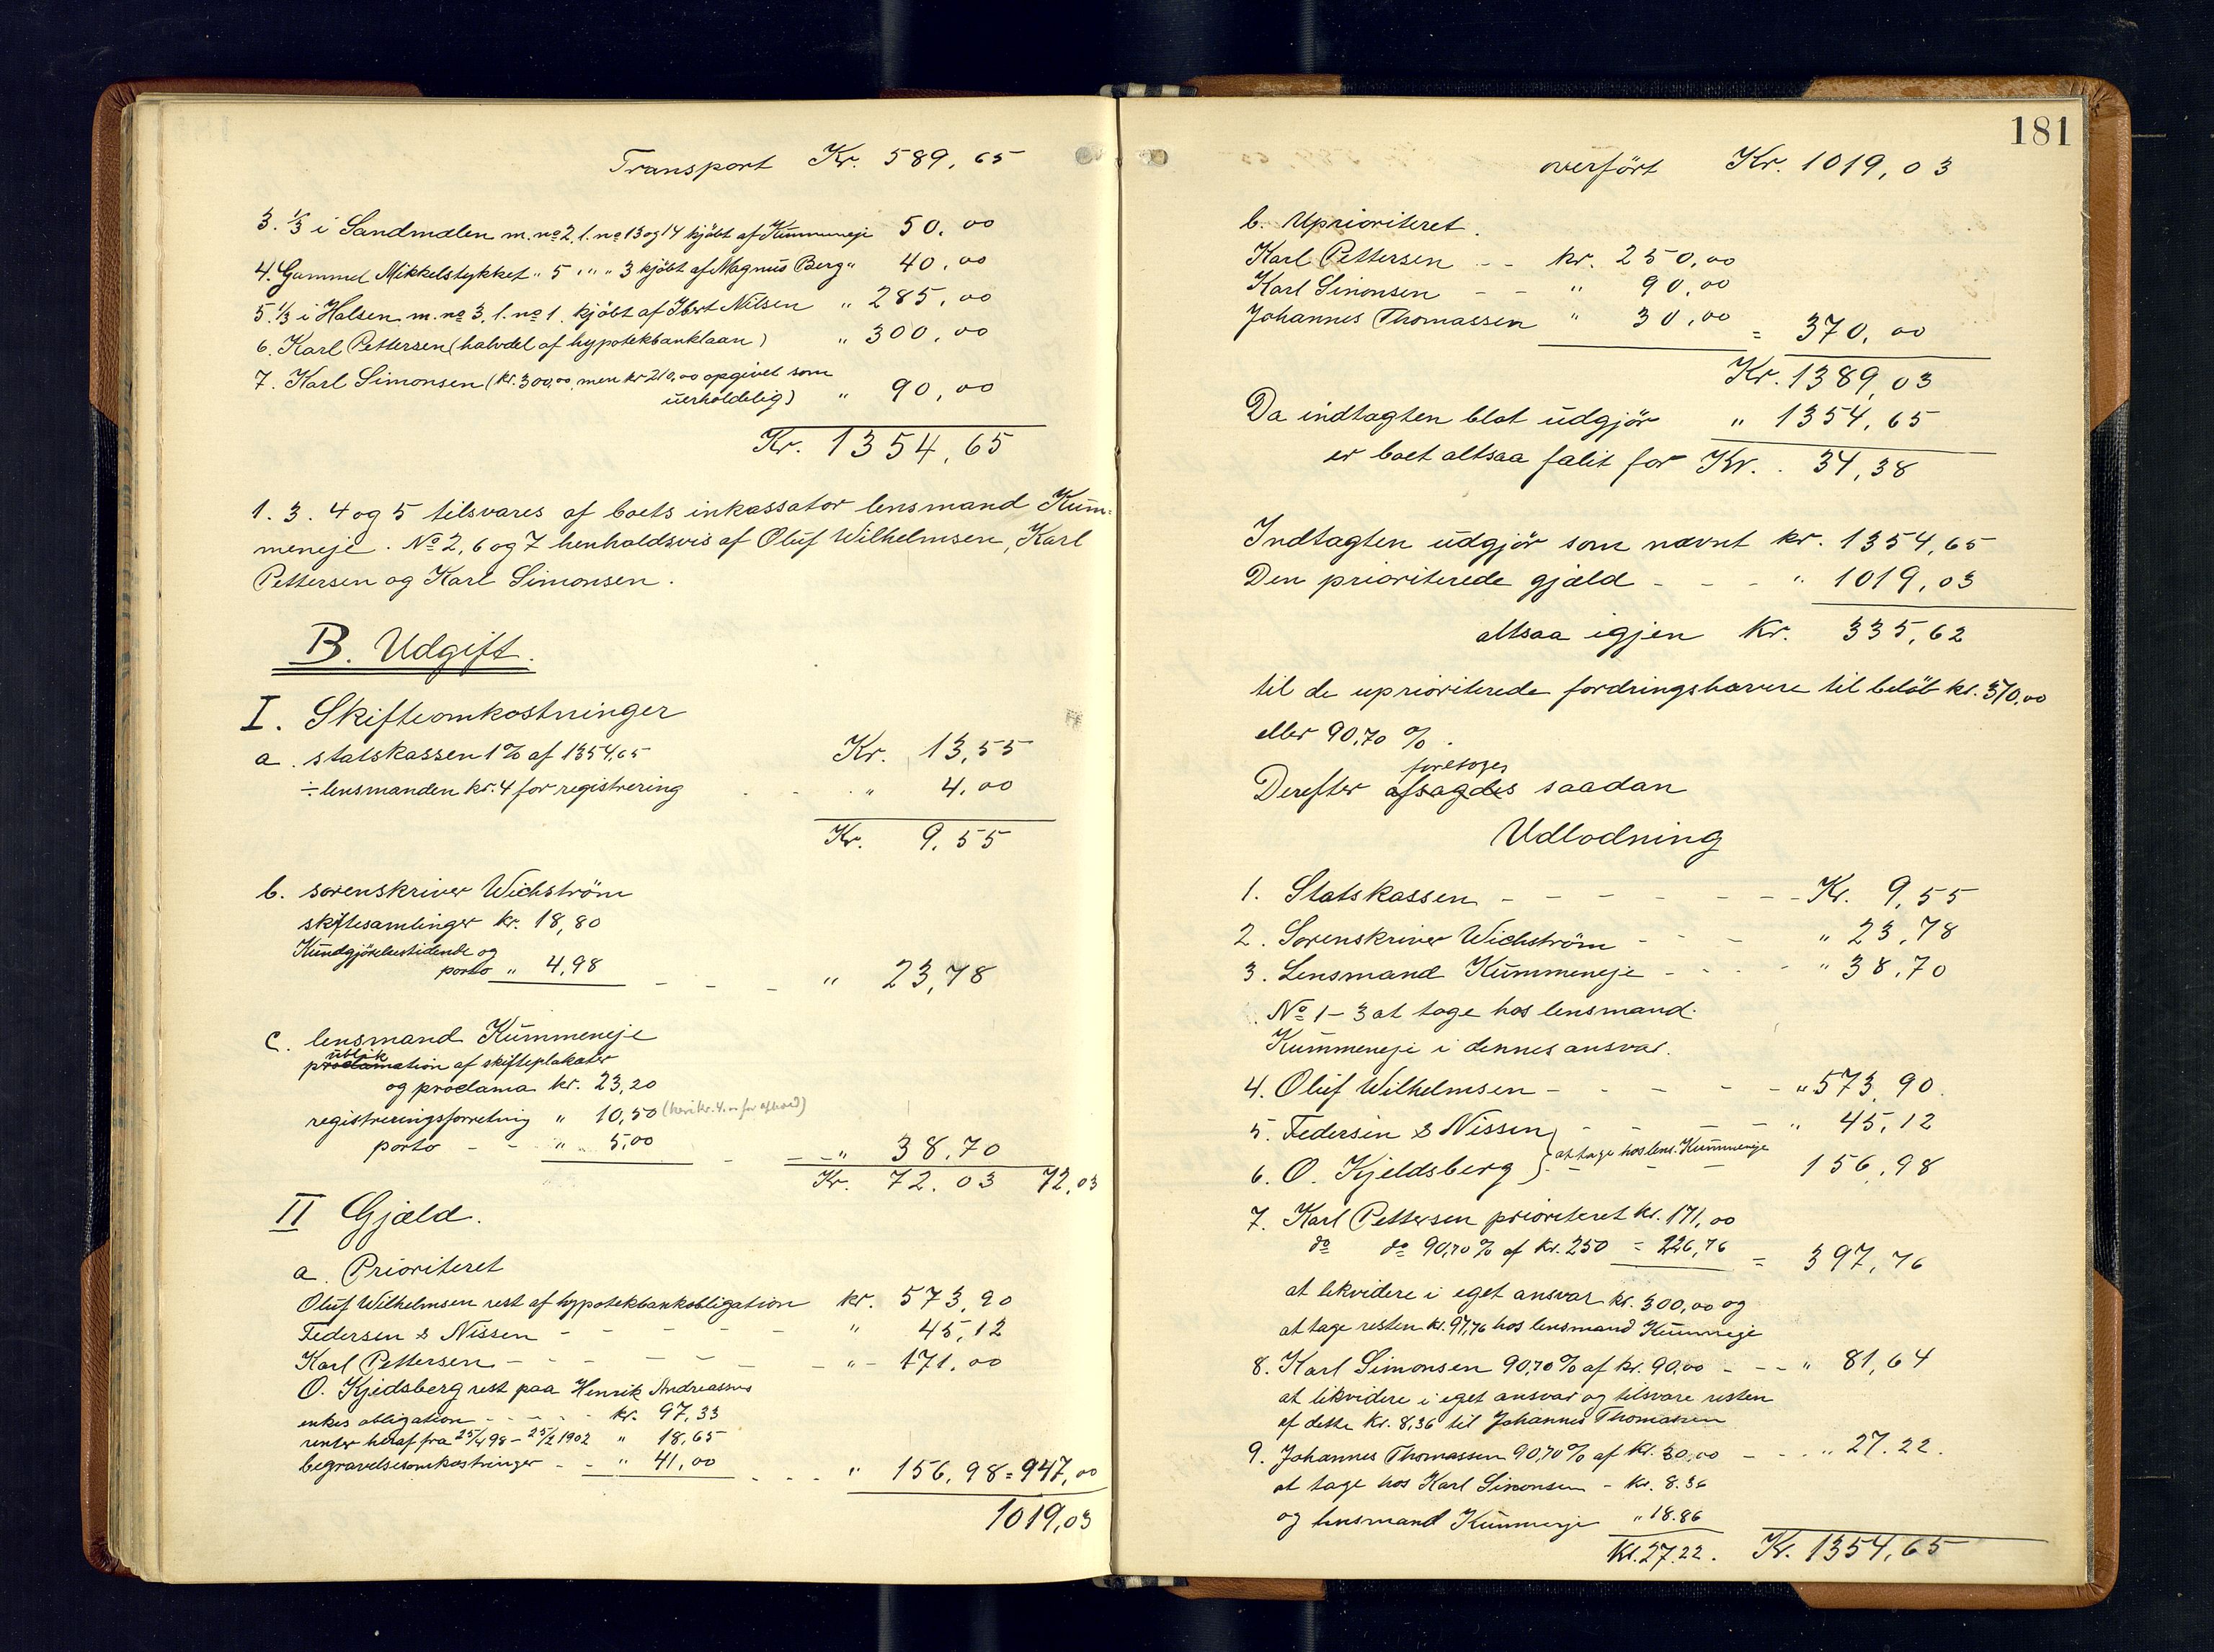 Transport Kr. 589,65
3. 1/3 i Sandmælen m.no 2, l.no 13 og 14 kjøbt af Kummeneje 50,00
4. Gammel Mikkelstykket " 5 " " " 3 kjøbt af Magnus Berg " 40,00
5. 1/3 i Halsen m.no 3, l.no 1. kjøbt af Ibert Nilsen " 285,00
6. Karl Pettersen (halvdel af hypotekbanklaan) " 300,00
7. Karl Simonsen (kr. 300,00, men kr 210,00 opgivet som
uerholdelig) " 90,00
Kr. 1354,65
1. 3. 4 og 5 tilsvares af boets inkassator lensmand Kum-
meneje. No 2, 6 og 7 henholdsvis af Oluf Wilhelmsen, Karl
Pettersen og Karl Simonsen.
B. Udgift.
I. Skifteomkostninger
a. statskassen 1% af 1354,65 Kr. 13,55
÷ lensmanden kr. 4 for registrering - - " 4,00
Kr. 9,55
b. sorenskriver Wichström
skiftesamlinger kr. 18,80
Kundgjörelsestidende og
porto " 4,98 - - - " 23,78
c. lensmand Kummeneje
ublik
proclamation af skifteplakater
og proclama kr. 23,20
registreringsforretning " 10,50 (heri kr. 4.00 for afhold)
porto - - " 5,00 - - - " 38,70
Kr. 72.03 72,03
II Gjæld.
a. Prioriteret
Oluf Wilhelmsen rest af hypotekbankobligation kr. 573,90
Federsen & Nissen - - - - - " 45,12
Karl Pettersen - - - - - - - " - 171,00
O. Kjeldsberg rest paa Henrik Andreassens
enkes obligation - - - - kr. 97,33
renter heraf fra 25/4 98 - 25/2 1902 " 18,65
begravelsesomkostninger - - " 41,00 - - - " 156,98 = 947,00
1019,03
181
overført Kr. 1019,03
b. Uprioriteret.
Karl Pettersen - - kr. 250,00
Karl Simonsen - - " 90,00
Johannes Thomassen " 30,00 = 370,00
Kr. 1389,03
Da indtagten blot udgjör " 1354,65
er boet altsaa falit for Kr. . 34,38
Indtagten udgjör som nævnt kr. 1354,65
Den prioriterede gjæld - - - " 1019,03
altsaa igjen Kr. 335,62
til de uprioriterede fordringshavere til beløb kr. 370,00
eller 90,70 %.
foretoges
Derefter afsagdes saadan
Udlodning
1. Statskassen - - - - - - - Kr. 9,55
2. Sorenskriver Wichström - - - " 23,78
3. Lensmand Kummeneje - - - - " 38,70
No 1 - 3 at tage hos lensmand
Kummeneje i dennes ansvar.
4. Oluf Wilhelmsen - - - - - " 573,90.
5. Federsen & Nissen - - - - " 45,12
} at tage hos lens. Kummeneje
6. O. Kjeldsberg - - - 156,98
7. Karl Pettersen prioriteret kr. 171,00
do do 90,70% af kr. 250 = 226,76 = 397,76
at likvidere i eget ansvar kr. 300,00 og
at tage resten kr. 97,76 hos lensmand Kummeneje
8. Karl Simonsen 90,70% af kr. 90,00 - - - " 81,64
at likvidere i eget ansvar og tilsvare resten
af dette kr. 8,36 til Johannes Thomassen
9. Johannes Thomassen 90,70% af kr. 30,00 - - - " 27.22.
at tage hos Karl Simonsen - kr. 8.36
og lensmand Kummeneje " 18.86
kr. 27.22. Kr. 1354,65